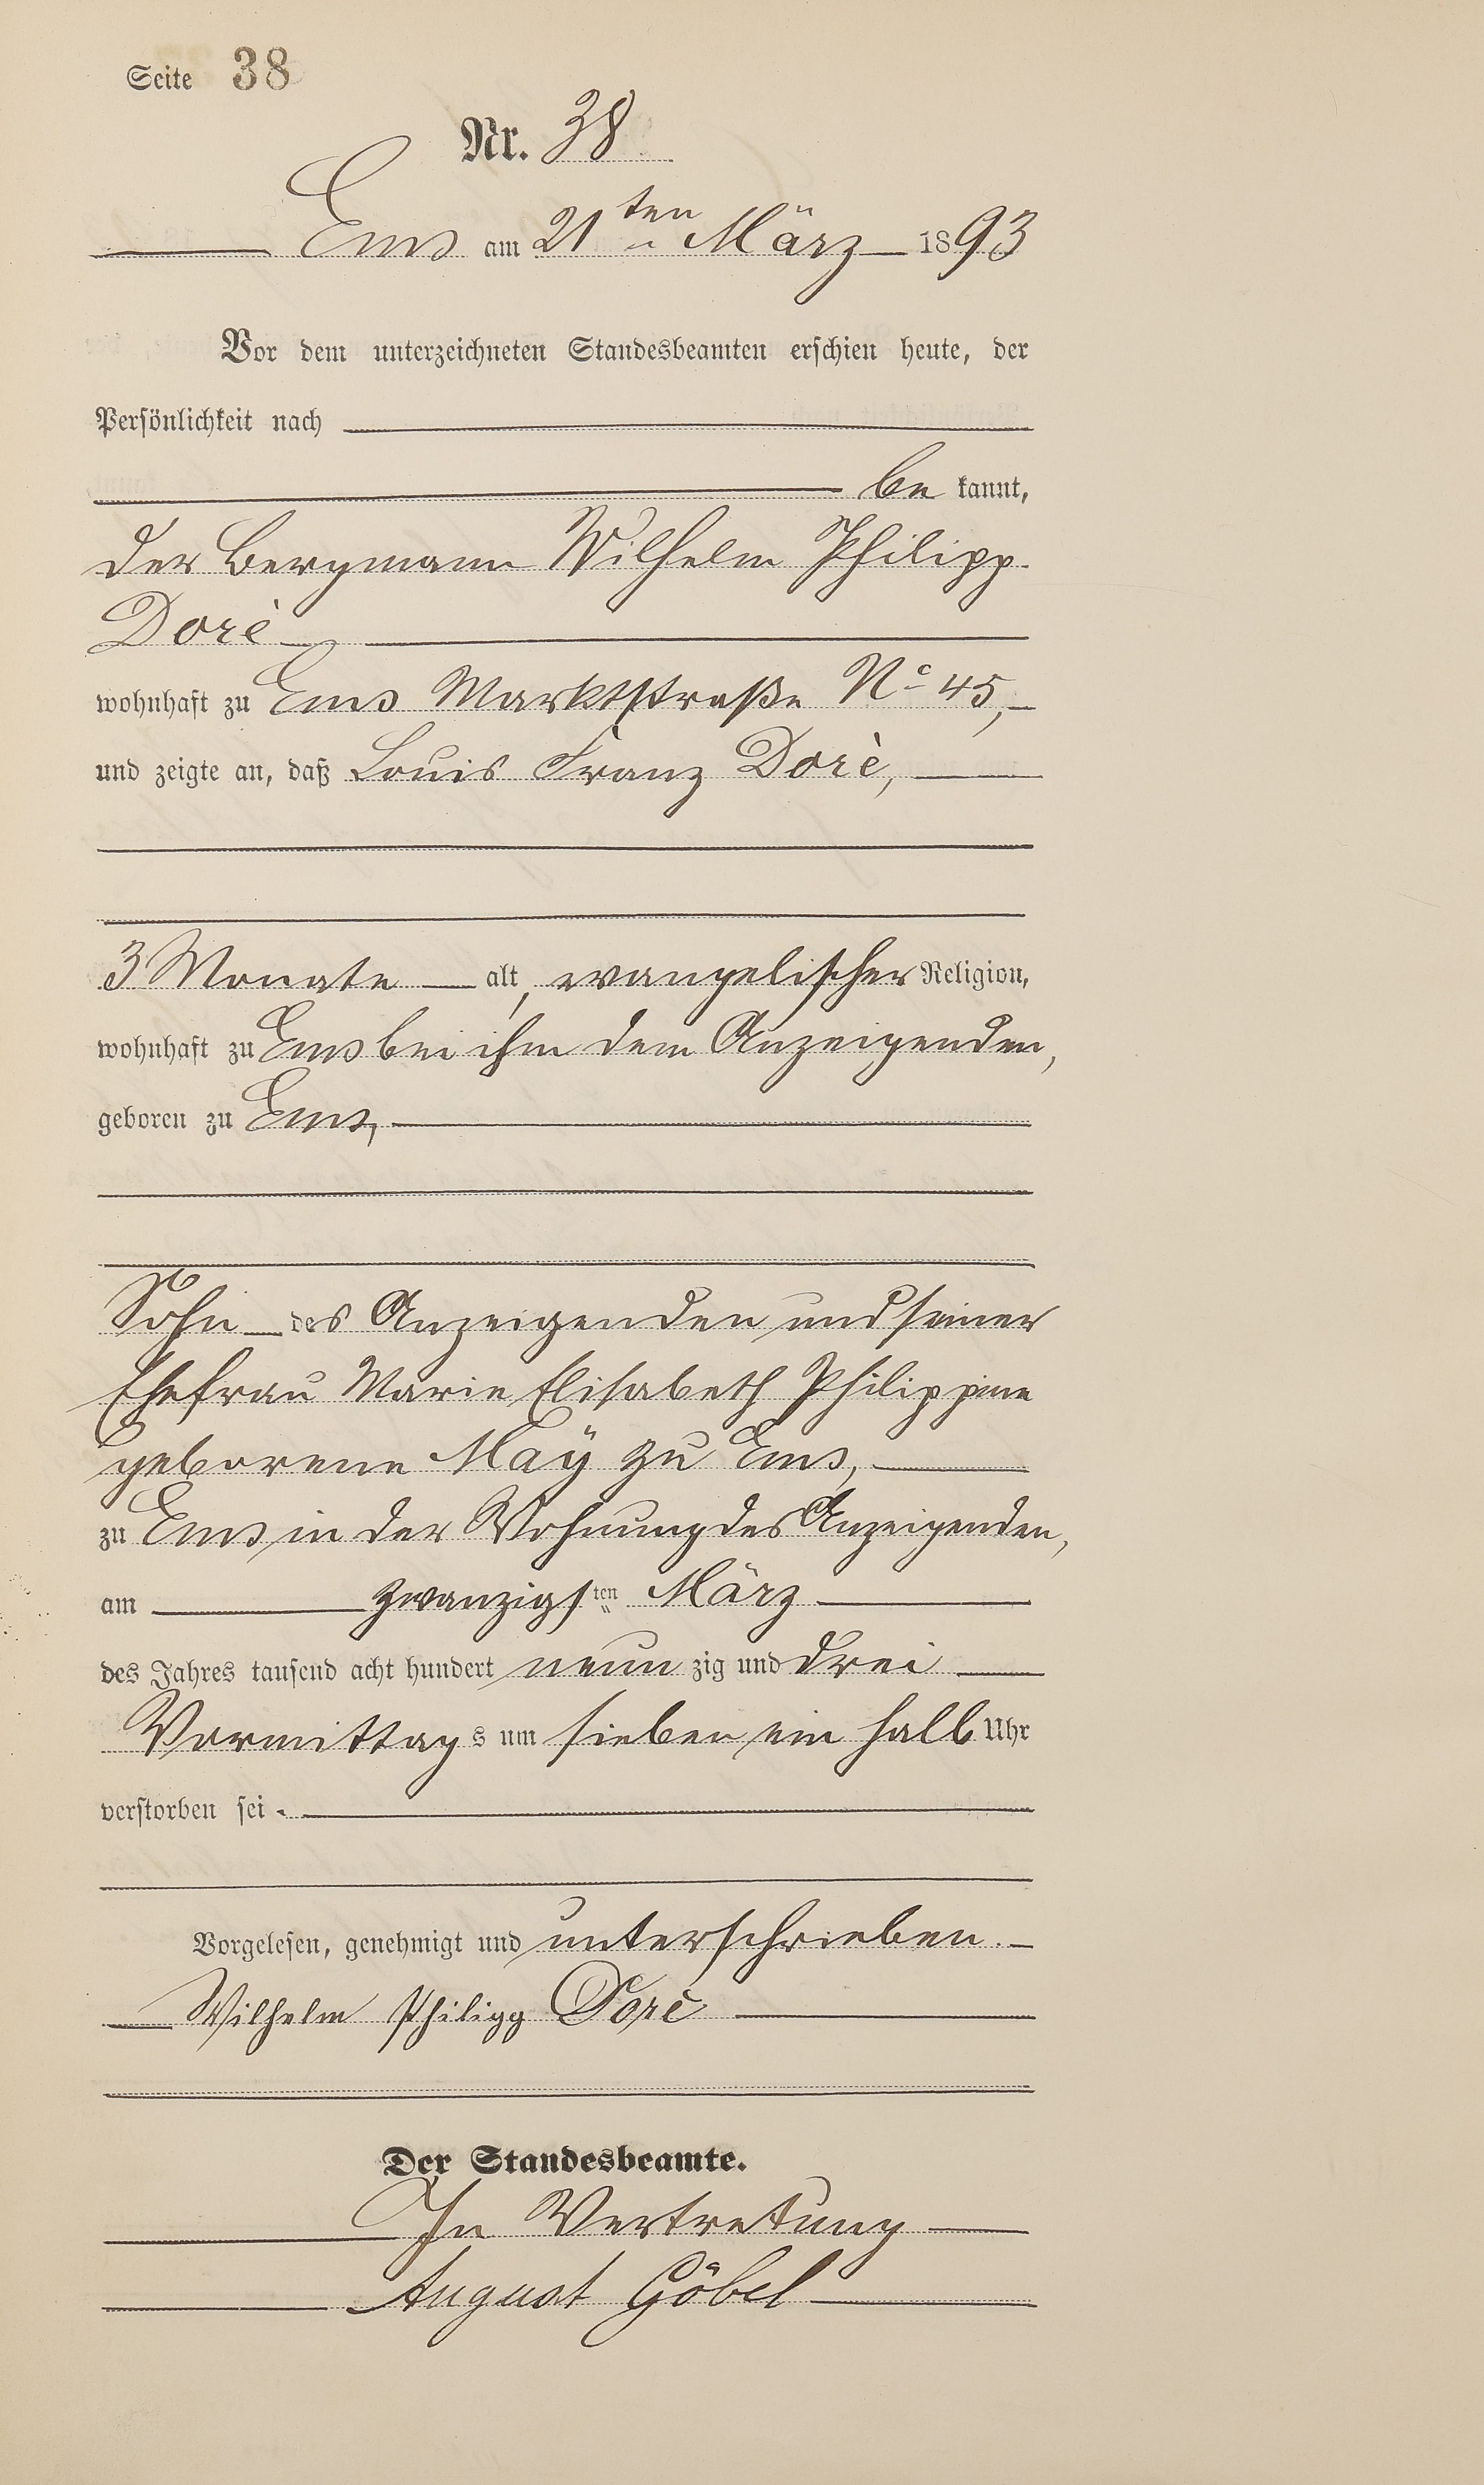 Seite 38
Nr. 38
Ems am 21ten März 1893
Vor dem unterzeichneten Standesbeamten erschien heute, der
Persönlichkeit nach
be kannt,
der Bergmann Wilhelm Philipp
Dorè
wohnhaft zu Ems Marktstraße No 45,
und zeigte an, daß Louis Franz Dorè,
3 Monate alt, evangelischer Religion,
wohnhaft zu Ems bei ihm dem Anzeigenden,
geboren zu Ems,
Sohn des Anzeigenden und seiner
Ehefrau Marie Elisabeth Philippine
geborene Maÿ zu Ems,
zu Ems in der Wohnung des Anzeigenden,
am zwanzigsten März
des Jahres tausend acht hundert neun zig und drei
Vormittags um sieben ein halb Uhr
verstorben sei.
Vorgelesen, genehmigt und unterschrieben.
Wilhelm Philipp Dorè
Der Standesbeamte.
In Vertretung
August Göbel